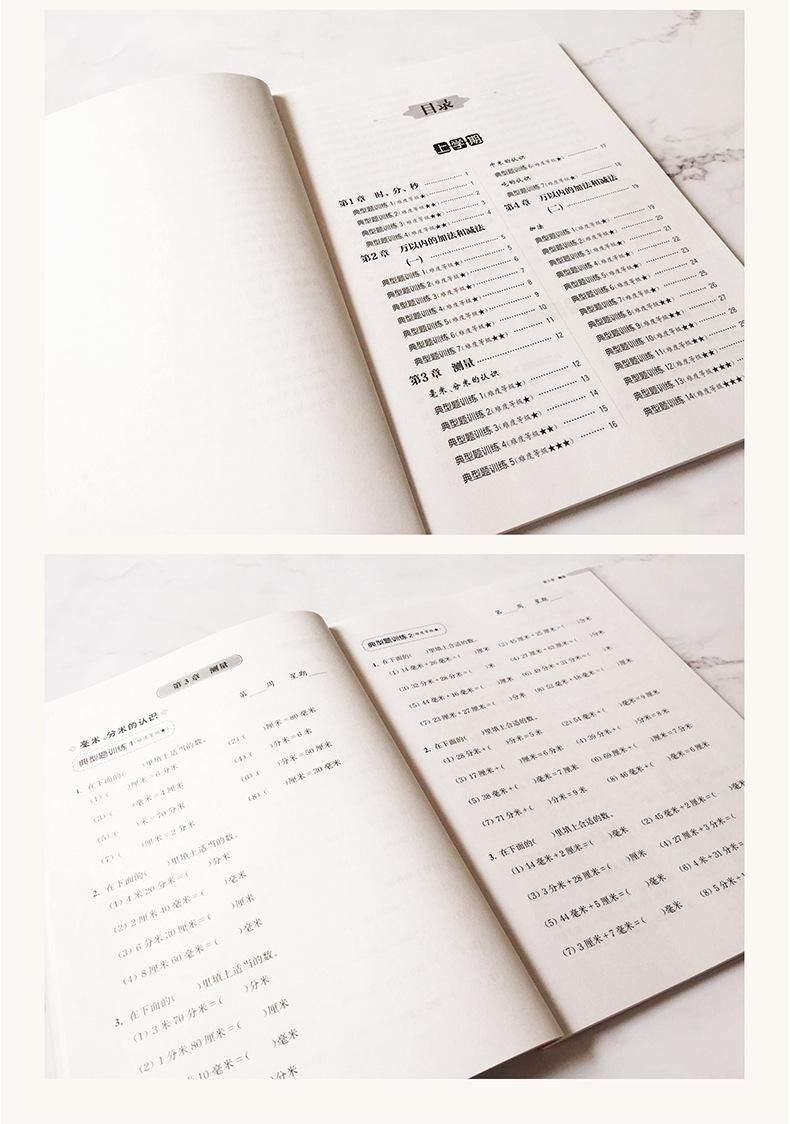 目录
上学期
第1章 时、分、秒 1
典型题训练 1(难度等级★) 1
典型题训练 2(难度等级★★) 2
典型题训练 3(难度等级★★) 3
典型题训练 4(难度等级★★) 4
第2章 万以内的加法和减法
(一) 5
典型题训练 1(难度等级★) 5
典型题训练 2(难度等级★) 6
典型题训练 3(难度等级★) 7
典型题训练 4(难度等级★) 8
典型题训练 5(难度等级★★) 9
典型题训练 6(难度等级★) 10
典型题训练 7(难度等级★★) 11
第3章 测量 12
毫米、分米的认识
典型题训练 1(难度等级★) 12
典型题训练 2(难度等级★) 13
典型题训练 3(难度等级★) 14
典型题训练 4(难度等级★★) 15
典型题训练 5(难度等级★★★) 16
千米的认识 17
典型题训练 6(难度等级★)
吨的认识 18
典型题训练 7(难度等级★)
第4章 万以内的加法和减法
(二) 19
加法
典型题训练 1(难度等级★) 19
典型题训练 2(难度等级★) 20
典型题训练 3(难度等级★) 21
典型题训练 4(难度等级★) 22
典型题训练 5(难度等级★) 23
典型题训练 6(难度等级★) 24
典型题训练 7(难度等级★) 25
典型题训练 8(难度等级★★) 26
典型题训练 9(难度等级★★) 27
典型题训练 10(难度等级★★) 28
典型题训练 11(难度等级★★)
典型题训练 12(难度等级★★
典型题训练 13(难度等级★★★
典型题训练 14(难度等级★★
第3章 测量
第 周 星期
毫米、分米的认识
典型题训练 1(难度等级★)
1. 在下面的( )里填上适当的数。
(1) ( )厘米=6分米 (2) ( )厘米=80毫米
(3) ( )毫米=4厘米 (4) ( )分米=6米
(5) ( )米=70分米 (6) ( )分米=50厘米
(7) ( )厘米=2分米 (8) ( )厘米=30毫米
2. 在下面的( )里填上适当的数。
(1) 4米20分米=( )分米
(2) 2厘米40毫米=( )毫米
(3) 6分米30厘米=( )厘米
(4) 8厘米60毫米=( )毫米
3. 在下面的( )里填上适当的数。
(1) 3米70分米=( )分米
(2) 1分米80厘米=( )厘米
10毫米=( )毫米
)分米
第 周 星期
典型题训练 2(难度等级★)
1. 在下面的( )里填上合适的数。
(1) 14毫米+26毫米=( )厘米 (2) 45厘米+25厘米=( )分米
(3) 32分米+28分米=( )米 (4) 27厘米+63厘米=( )分米
(5) 44毫米+16毫米=( )厘米 (6) 49分米+31分米=( )米
(7) 23厘米+27厘米=( )分米 (8) 52毫米+18毫米=( )厘米
2. 在下面的( )里填上合适的数。
(1) 28分米+( )分米=5米 (2) 54毫米+( )毫米=9厘米
(3) 17厘米+( )厘米=6分米 (4) 39分米+( )分米=8米
(5) 38毫米+( )毫米=7厘米 (6) 69厘米+( )厘米=7分米
(7) 71分米+( )分米=9米 (8) 46毫米+( )毫米=6厘米
3. 在下面的( )里填上合适的数。
(1) 14毫米+2厘米=( )毫米 (2) 45毫米+2厘米=( )毫
(3) 3分米+28厘米=( )厘米 (4) 27厘米+3分米=(
(5) 44毫米+5厘米=( )毫米 (6) 4米+31分米=
(7) 3厘米+7毫米=( )毫米 (8) 5分米+1